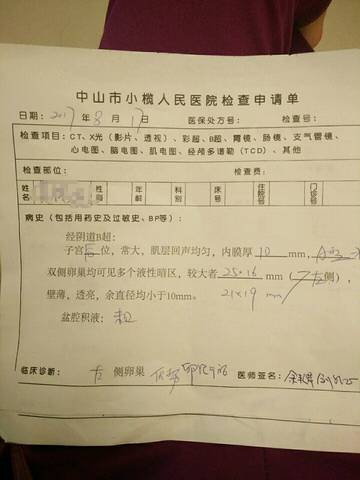 中山市小榄人民医院检查申请单
日期：2017年8月17日 医保处方号： 检查号：
检查项目：CT、X光（影片、透视）、彩超、B超、胃镜、肠镜、支气管镜、
心电图、脑电图、肌电图、经颅多谱勒（TCD）、其他
检查部位： 检查费：
姓名 性别 年龄 科别 床号 住院号 门诊号
病史（包括用药史及过敏史、BP等）：
经阴道B超：
子宫后位，常大，肌层回声均匀，内膜厚10mm，
双侧卵巢均可见多个液性暗区，较大者25×16mm（左侧），
壁薄，透亮，余直径均小于10mm。 21×19mm
盆腔积液：未见
临床诊断：左侧卵巢 医师签名：